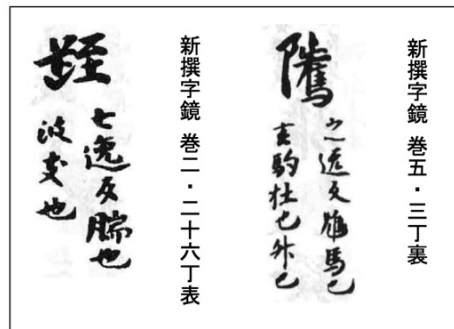 新撰字鏡 巻五・三丁裏
隲
之逸反雄馬也
駒牡也升也
新撰字鏡 巻二・二十六丁表
七逸反腨也
波支也